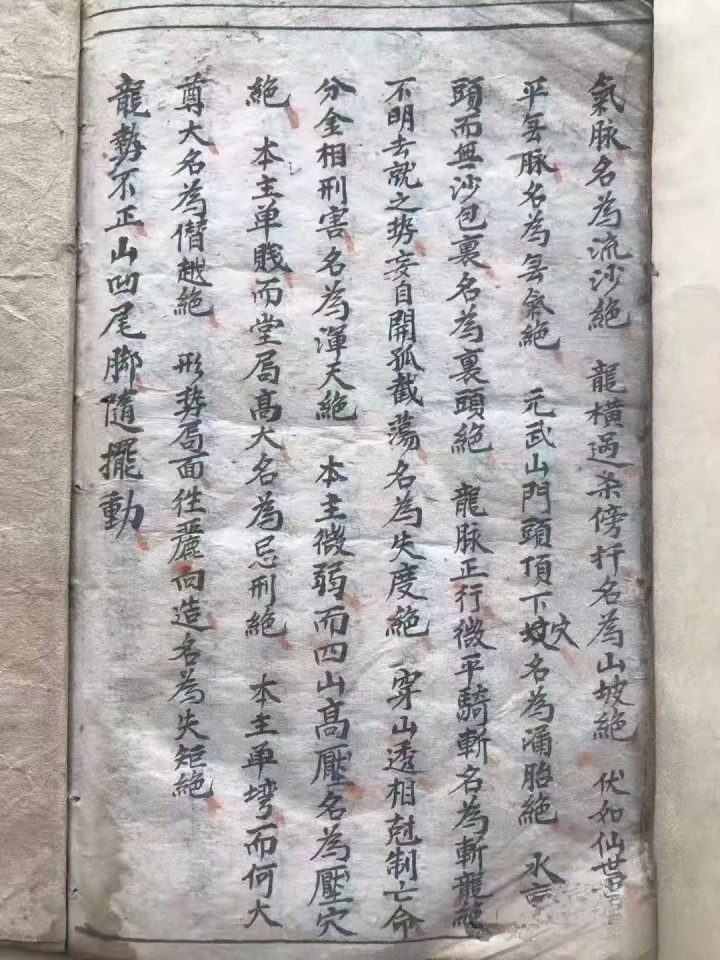 氣脉名為流沙絕　龍橫過杀傍扦名為山坡絕　伏如仙
平旡脉名為旡氣絕　元武山門頭頂下穴名為涌胎絕　水
頭而無沙包裏名為裏頭絕　龍脉正行微平騎斬名為斬龍絕
不明去就之势妄自開孤截蕩名為失度絕　穿山透相尅制亡命
分金相刑害名為渾天絕　本主微弱而四山高壓名為壓穴
絕　本主单賎而堂局高大名為忌刑絕　本主单彎而何大
尊大名為僭越絕　形势局面徃麗向造名為失矩絕
龍势不正山凹尾脚隨擺動